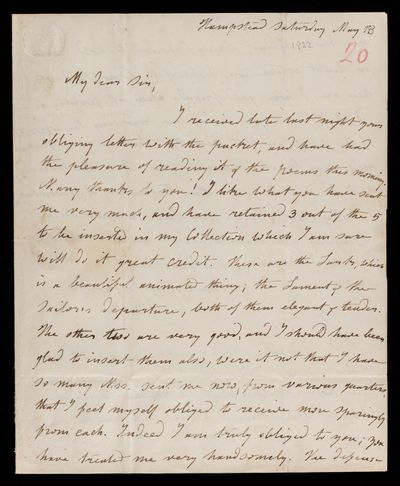 Hampstead Saturday May 18
1822
20
My dear Sir,
I received late last night your
obliging letter with the packet, and have had
the pleasure of reading it & the poems this morning.
Many thanks to you! I like what you have sent
me very much, and have retained 3 out of the 5
to be inserted in my Collection which I am sure
will do it great credit. These are the which
is a beautiful animated thing; the Lament & the
Sailor's departure, both of them elegant & tender.
The other two are very good, and I should have been
glad to insert them also, were it not that I have
so many Mss. sent me now, from various quarters,
that I feel myself obliged to receive more sparingly
from each. Indeed I am truly obliged to you; you
have treated me very handsomely.